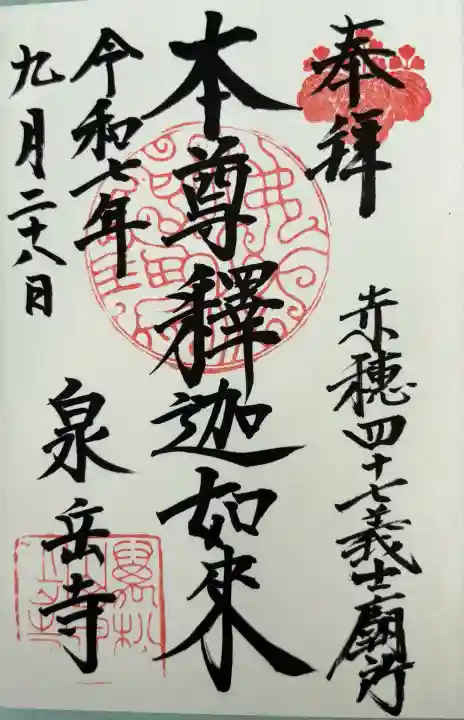 奉拝
赤穂四十七義士廟所
本尊釋迦如来
令和七年
九月二十八日
泉岳寺